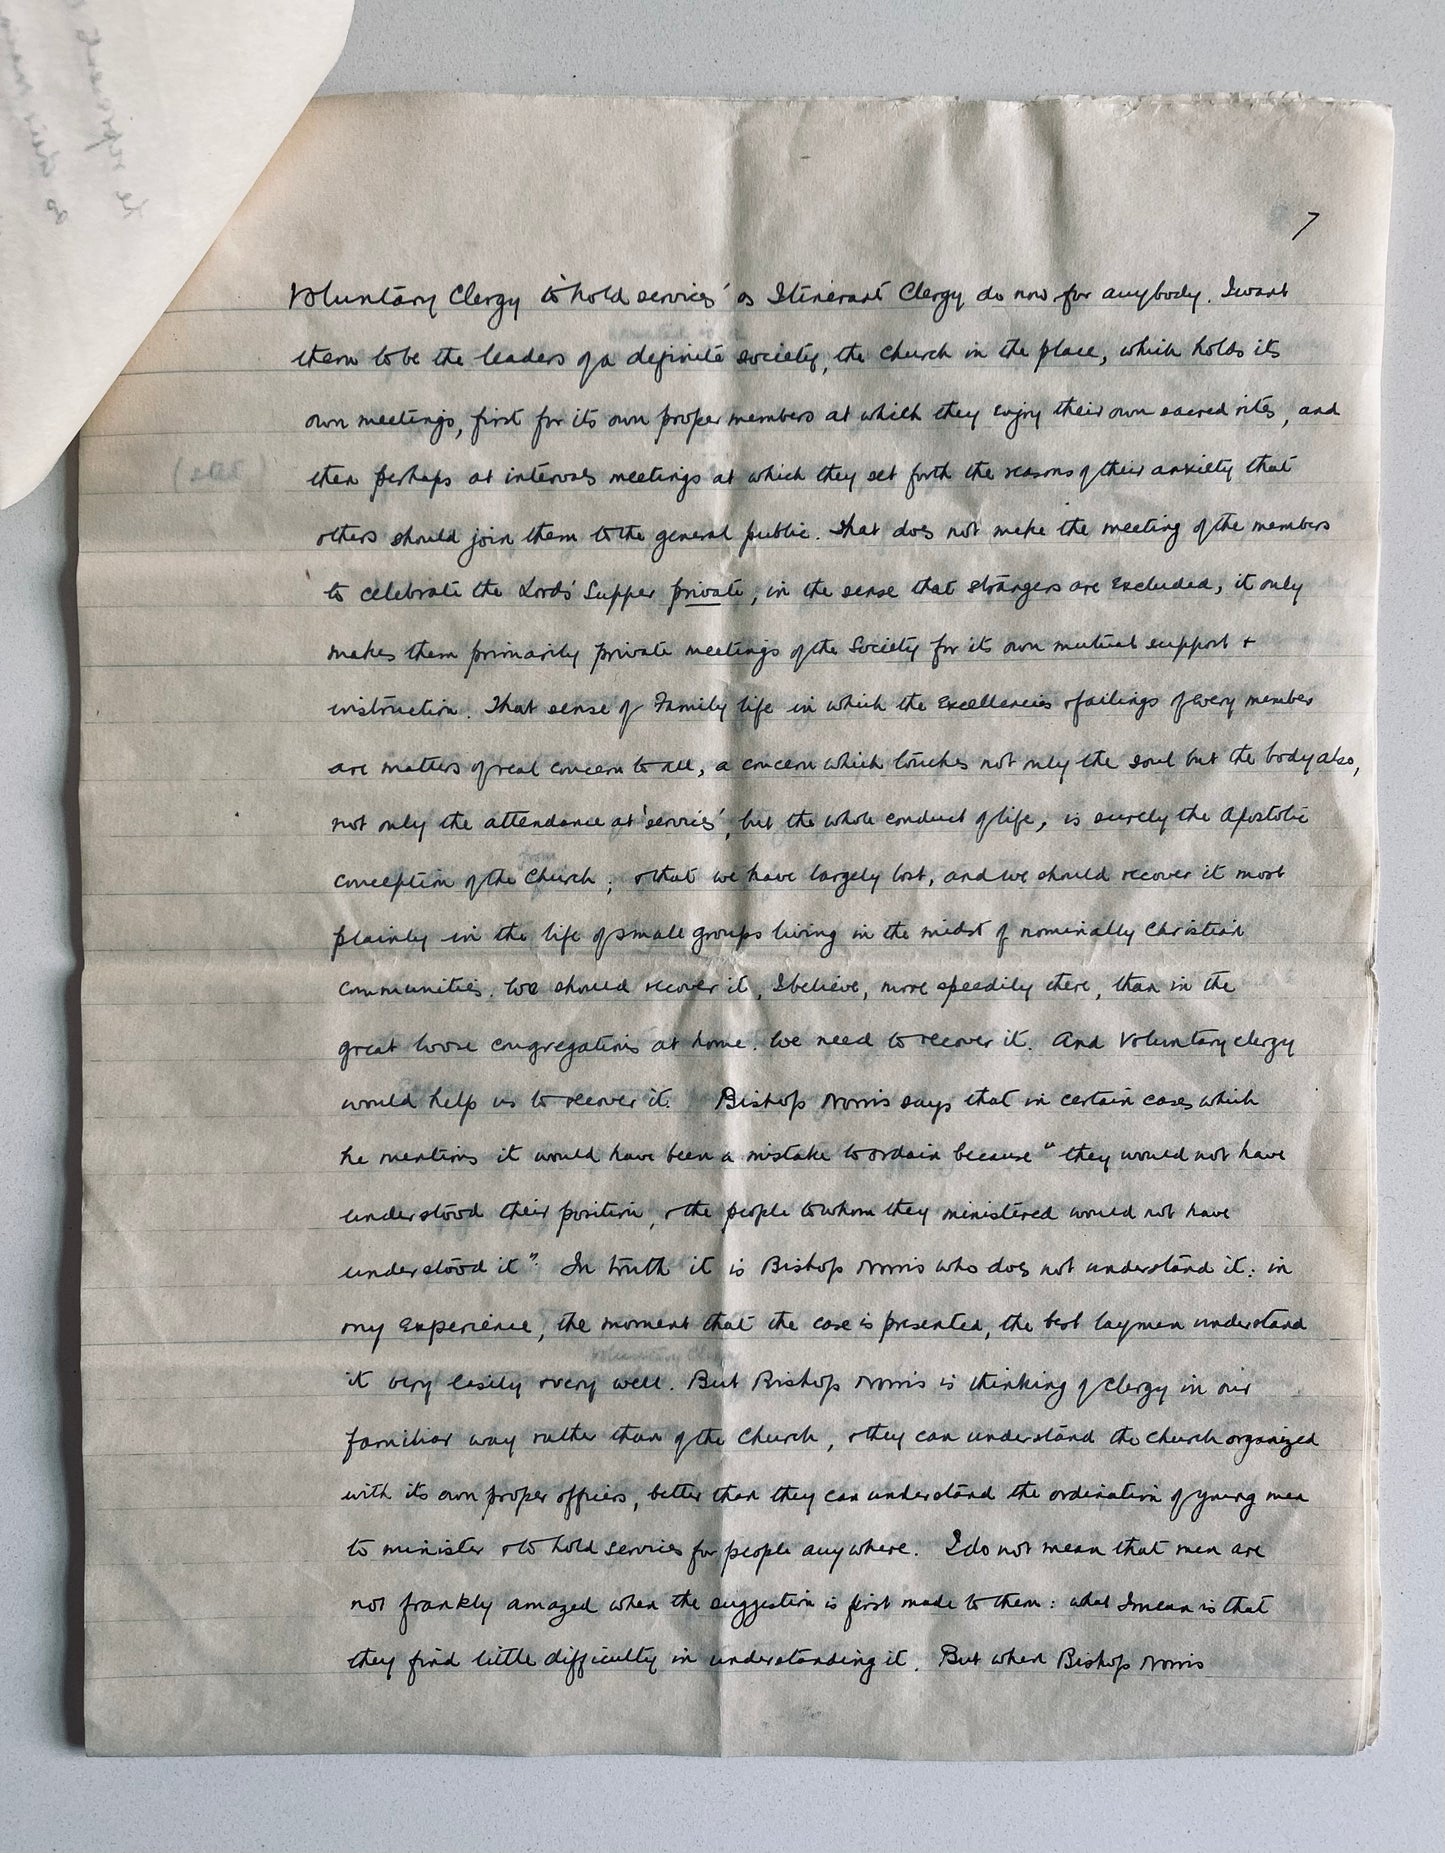 7
Voluntary Clergy to 'hold services' as Itinerant Clergy do now for anybody. I want
them to be the leaders of a definite society, the church in the place, which holds its
own meetings, first for its own proper members at which they enjoy their own sacred rites, and
then perhaps at intervals meetings at which they set forth the reasons of their anxiety that
others should join them to the general public. That does not make the meeting of the members
to celebrate the Lord's Supper private, in the sense that strangers are excluded, it only
makes them primarily private meetings of the Society for its own mutual support +
instruction. That sense of Family life in which the excellencies + failings of every member
are matters of real concern to all, a concern which touches not only the soul but the body also,
not only the attendance at 'services', but the whole conduct of life, is surely the Apostolic
conception of the Church; + that we have largely lost, and we should recover it most
plainly in the life of small groups living in the midst of nominally Christian
communities. We should recover it, I believe, more speedily there, than in the
great loose congregations at home. We need to recover it. And Voluntary clergy
would help us to recover it. Bishop Norris says that in certain cases which
he mentions it would have been a mistake to ordain because "they would not have
understood their position, + the people to whom they ministered would not have
understood it". In truth it is Bishop Norris who does not understand it: in
my experience, the moment that the case is presented, the best laymen understand
it very easily + very well. But Bishop Norris is thinking of clergy in our
familiar way rather than of the Church, + they can understand the church organized
with its own proper officers, better than they can understand the ordination of young men
to minister + to hold services for people anywhere. I do not mean that men are
not frankly amazed when the suggestion is first made to them: what I mean is that
they find little difficulty in understanding it. But when Bishop Norris